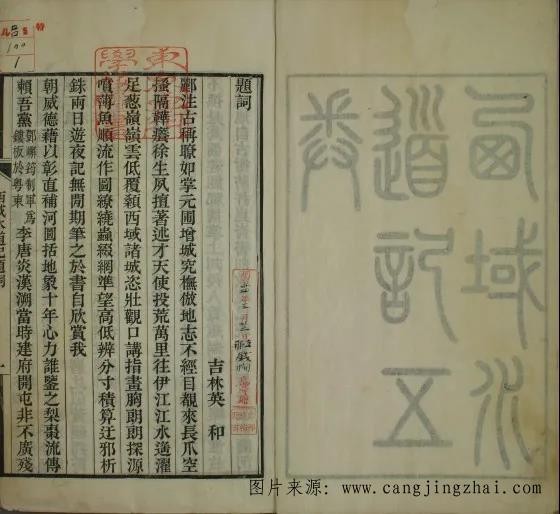 西域水
道記五
卷
題詞
吉林英 和
酈注古稱瞭如掌元圃增城究撫倣地志不經目覩來長爪空
搔隔韡癢徐生夙擅著述才天使投荒萬里往伊江江水過濯
足葱嶺嶺雲低覆顙西域諸城恣壯觀口講指畫胸朗朗探源
噴薄魚順流作圖繚繞蟲綴網準望高低辨分寸積算迂邪析
銖兩日遊夜記無閒期筆之於書自欣賞我
朝威德藉以彰直補河圖括地象十年心力誰鑒之梨棗流傳
賴吾黨鄧嶰筠制軍爲鏤板於粵東李唐炎漢溯當時建府開屯非不廣殘
西域水道記題詞 一
100
1
图片来源：www.cangjingzhai.com